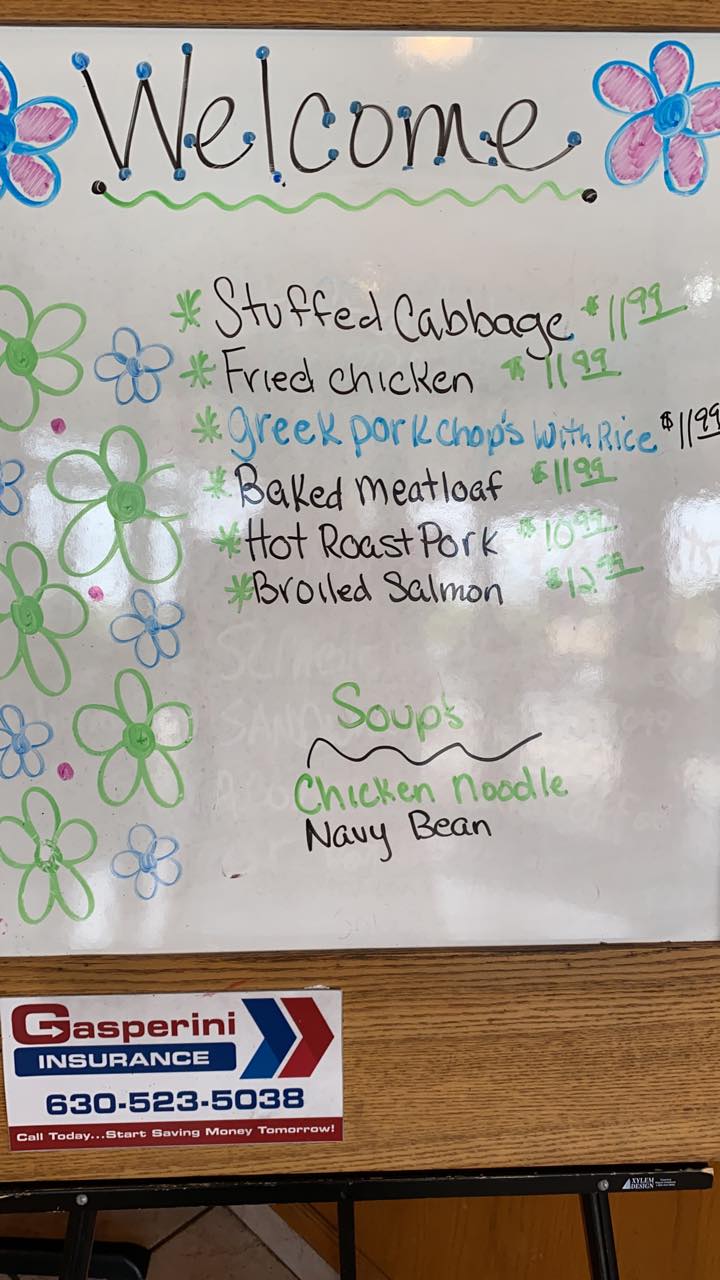 Welcome
* Stuffed Cabbage $11.99
* Fried chicken $11.99
* Greek pork chop's with Rice $11.99
* Baked meatloaf $11.99
* Hot Roast Pork $10.99
* Broiled Salmon $12.99
Soup's
Chicken noodle
Navy Bean
Gasperini
INSURANCE
630-523-5038
Call Today...Start Saving Money Tomorrow!
XYLEM
DESIGN